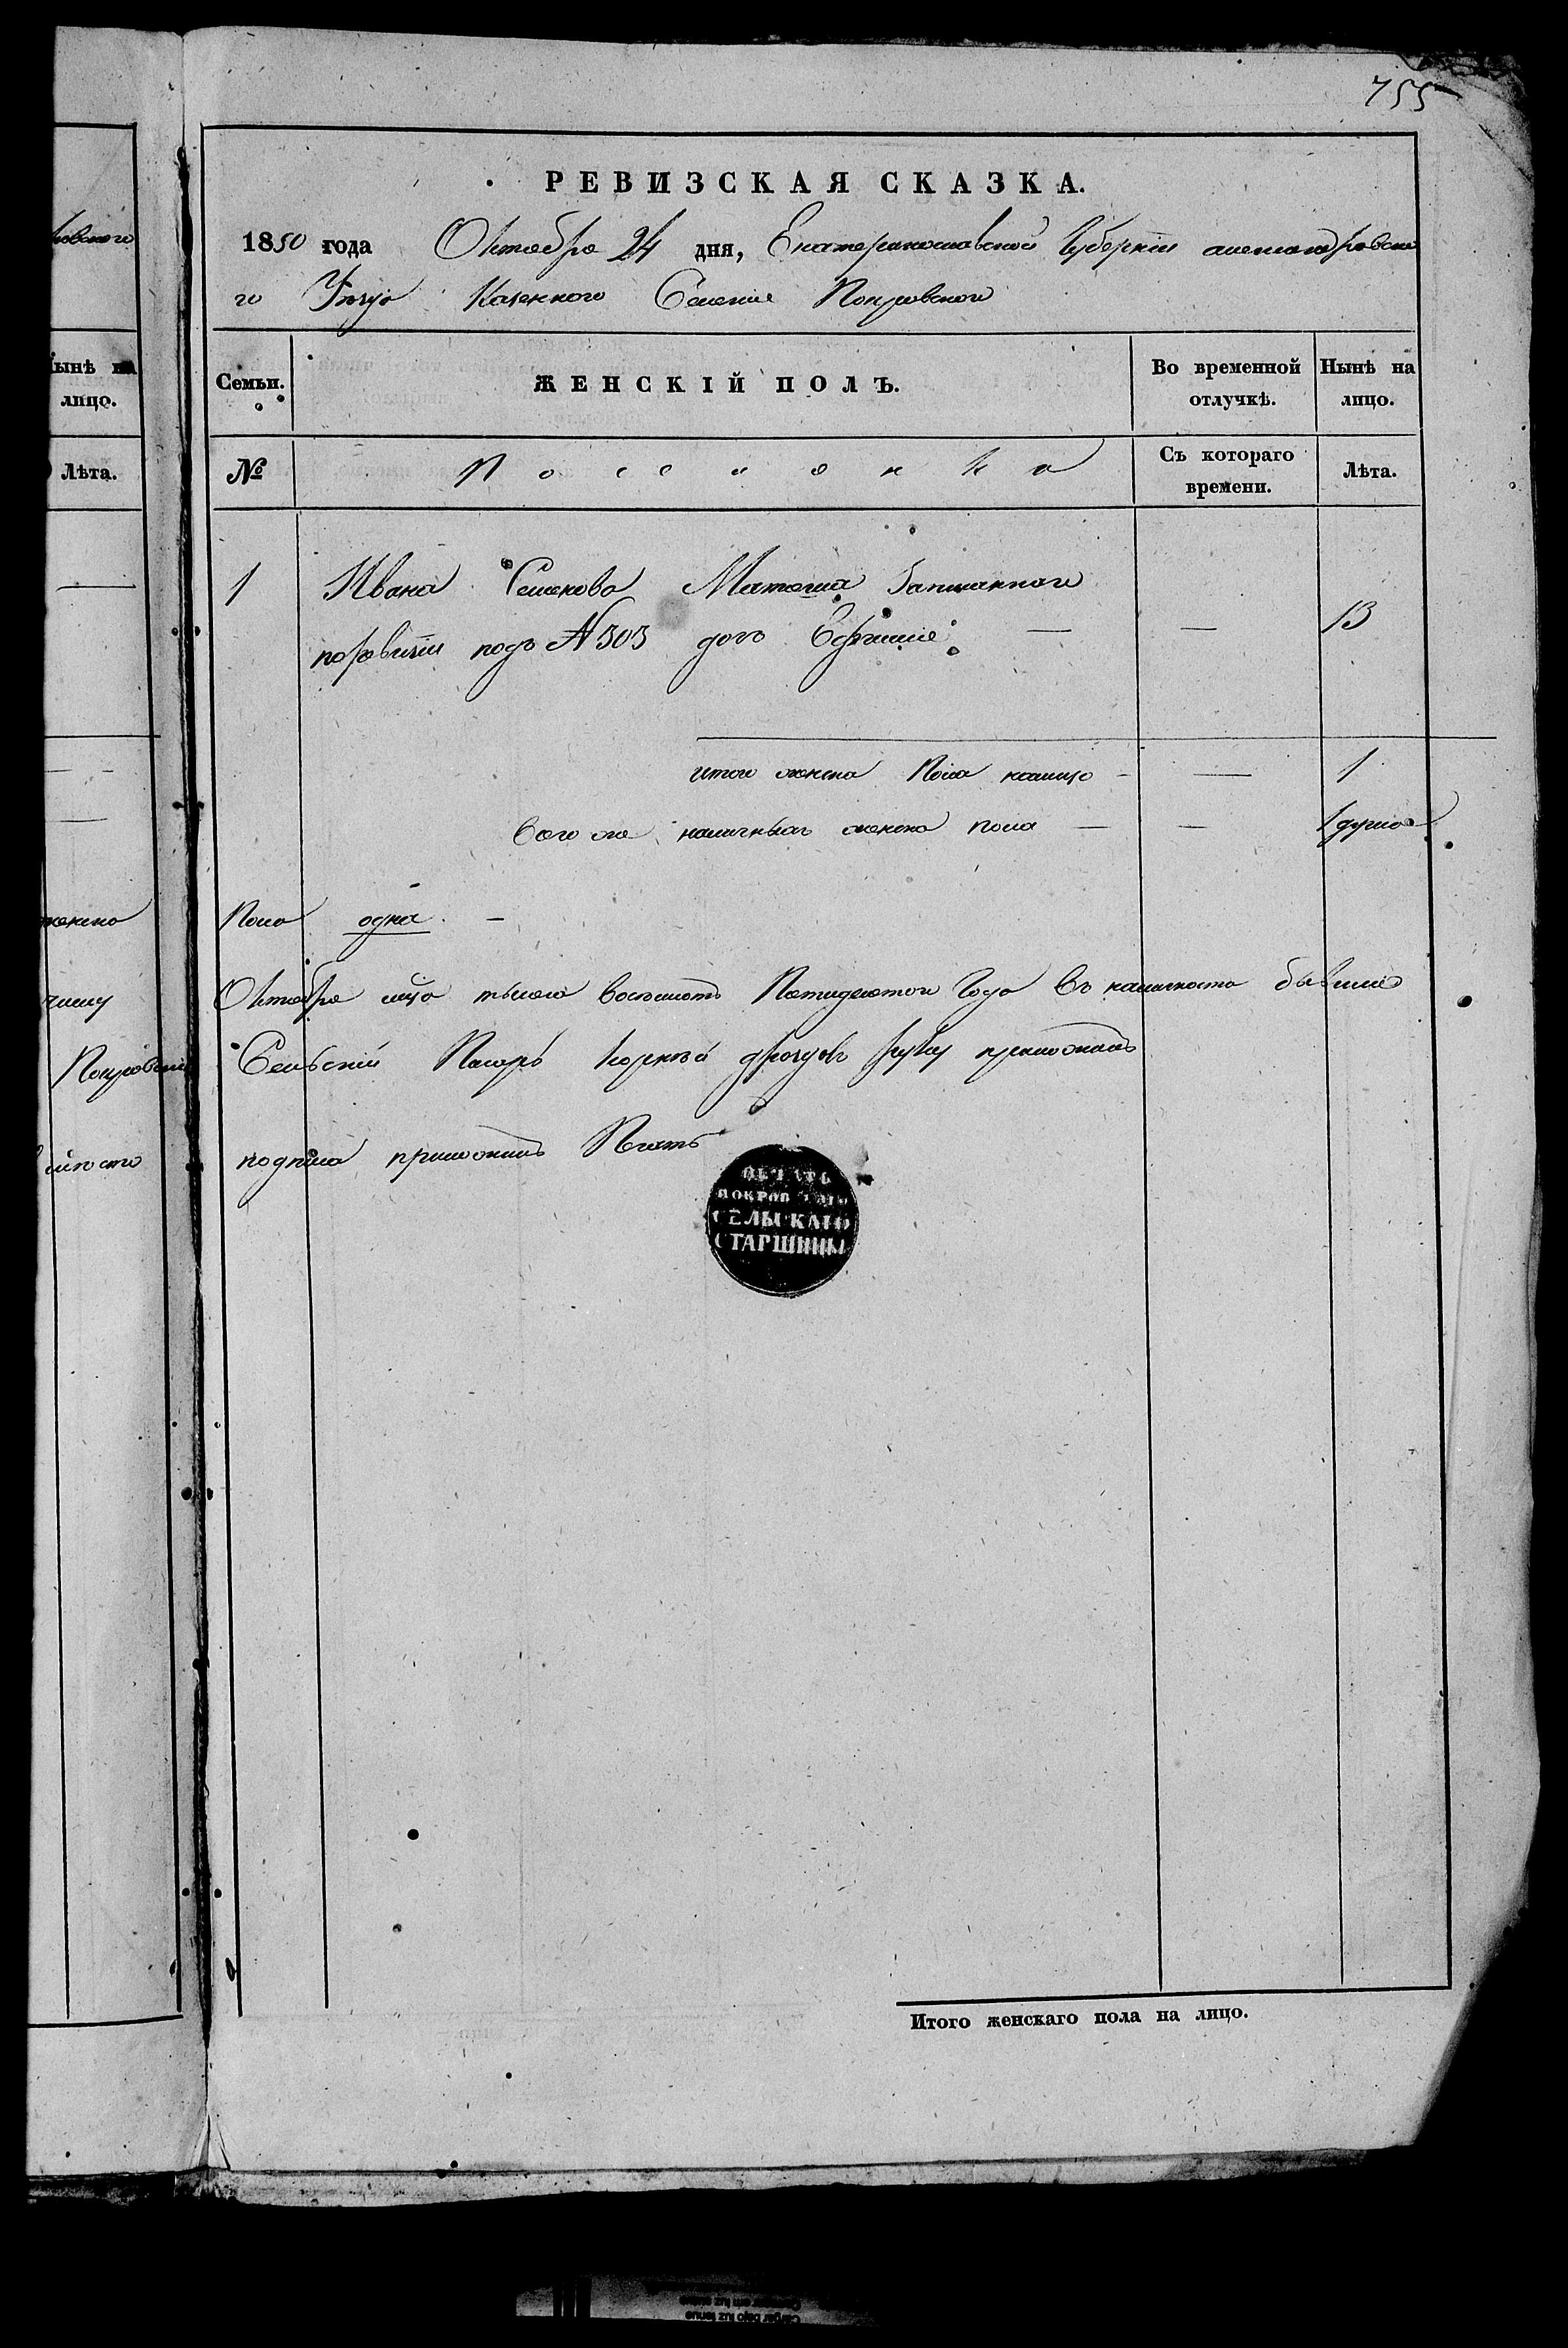 755
РЕВИЗСКАЯ СКАЗКА.
1850 года Октября 24 дня, Екатеринославской Губернии александровска
го Уезда Казенного Селения Покровского
Нынѣ на
лицо.
Лѣта.
Семьи.
ЖЕНСКІЙ ПОЛЪ.
Во временной
отлучкѣ.
Нынѣ на
лицо.
№
Поселянка
Съ котораго
времени.
Лѣта.
1 Ивана Семенова записаннаго
поревизіи подъ № 303 дочь Ефимія — — 13
итого женска Пола налицо — — 1
всего же наличныхъ женска пола — — 1 душа
женска
Пола одна —
Октября мца тысяча восемсотъ Пятидесятого Года въ
Покровскій
Сельскій Писарь Корнѣй руку приложилъ
приложилъ Печать
ПЕЧАТЬ
ПОКРОВСКАГО
СЕЛЬСКАГО
СТАРШИНЫ
Итого женскаго пола на лицо.